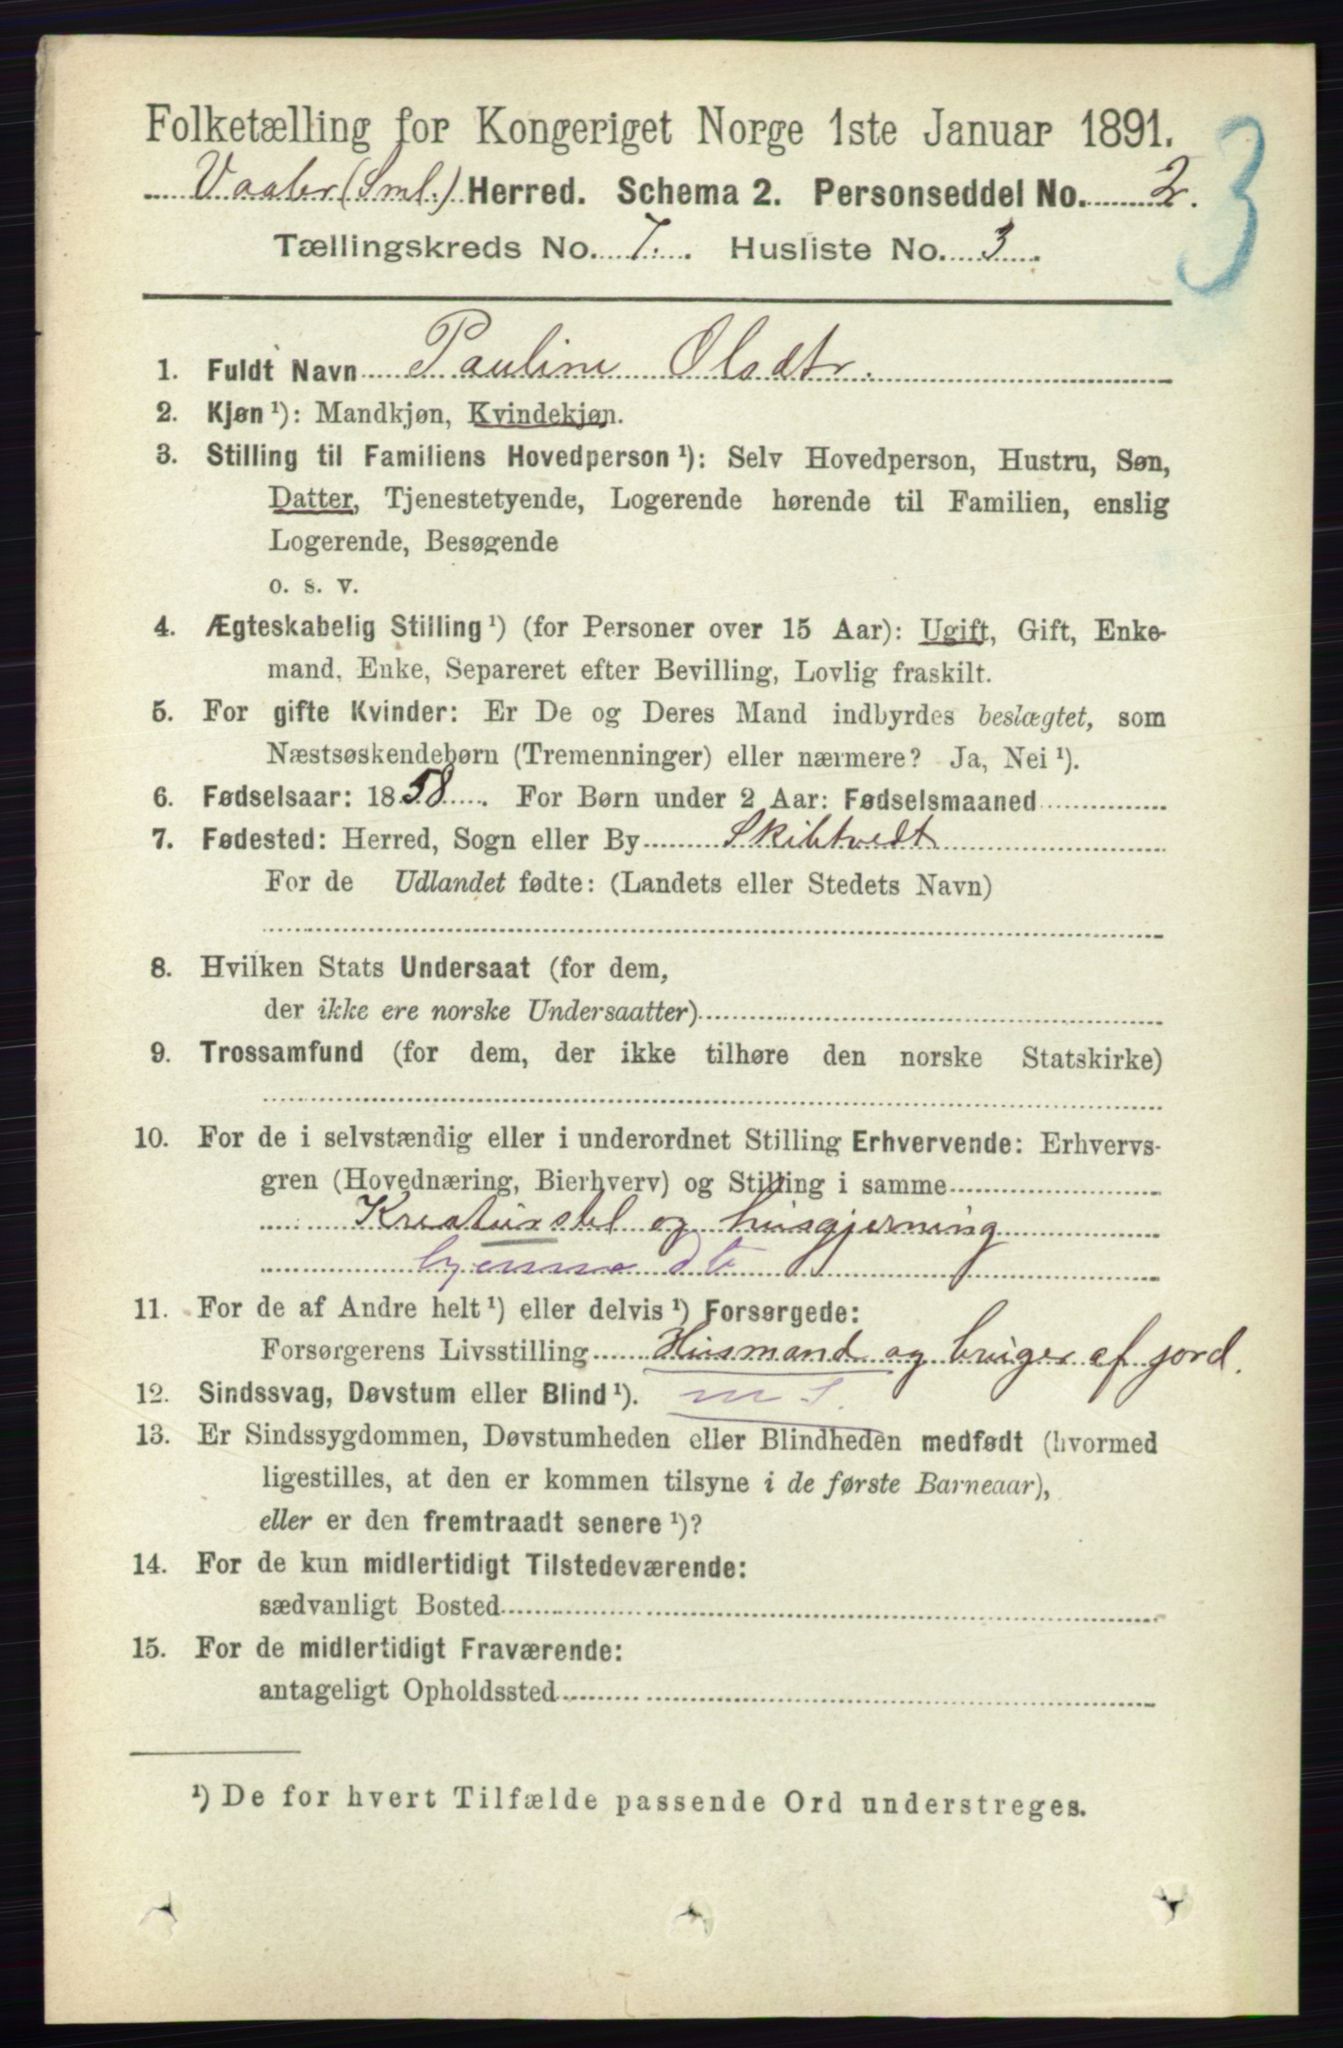 Folketælling for Kongeriget Norge 1ste Januar 1891.
Vaaler (Sml.) Herred. Schema 2. Personseddel No. 2.
Tællingskreds No. 7. Husliste No. 3.
3
1. Fuldt Navn Pauline Olsdtr.
2. Kjøn ¹): Mandkjøn, Kvindekjøn.
3. Stilling til Familiens Hovedperson ¹): Selv Hovedperson, Hustru, Søn,
Datter, Tjenestetyende, Logerende hørende til Familien, enslig
Logerende, Besøgende
o. s. v.
4. Ægteskabelig Stilling ¹) (for Personer over 15 Aar): Ugift, Gift, Enke-
mand, Enke, Separeret efter Bevilling, Lovlig fraskilt.
5. For gifte Kvinder: Er De og Deres Mand indbyrdes beslægtet, som
Næstsøskendebørn (Tremenninger) eller nærmere? Ja, Nei ¹).
6. Fødselsaar: 1858. For Børn under 2 Aar: Fødselsmaaned
7. Fødested: Herred, Sogn eller By Skibtvedt
For de Udlandet fødte: (Landets eller Stedets Navn)
8. Hvilken Stats Undersaat (for dem,
der ikke ere norske Undersaatter)
9. Trossamfund (for dem, der ikke tilhøre den norske Statskirke)
10. For de i selvstændig eller i underordnet Stilling Erhvervende: Erhvervs-
gren (Hovednæring, Bierhverv) og Stilling i samme
Kreaturstel og husgjerning
hjemme dt
11. For de af Andre helt ¹) eller delvis ¹) Forsørgede:
Forsørgerens Livsstilling Husmand og bruger af jord.
12. Sindssvag, Døvstum eller Blind ¹). m S.
13. Er Sindssygdommen, Døvstumheden eller Blindheden medfødt (hvormed
ligestilles, at den er kommen tilsyne i de første Barneaar),
eller er den fremtraadt senere ¹)?
14. For de kun midlertidigt Tilstedeværende:
sædvanligt Bosted
15. For de midlertidigt Fraværende:
antageligt Opholdssted
¹) De for hvert Tilfælde passende Ord understreges.